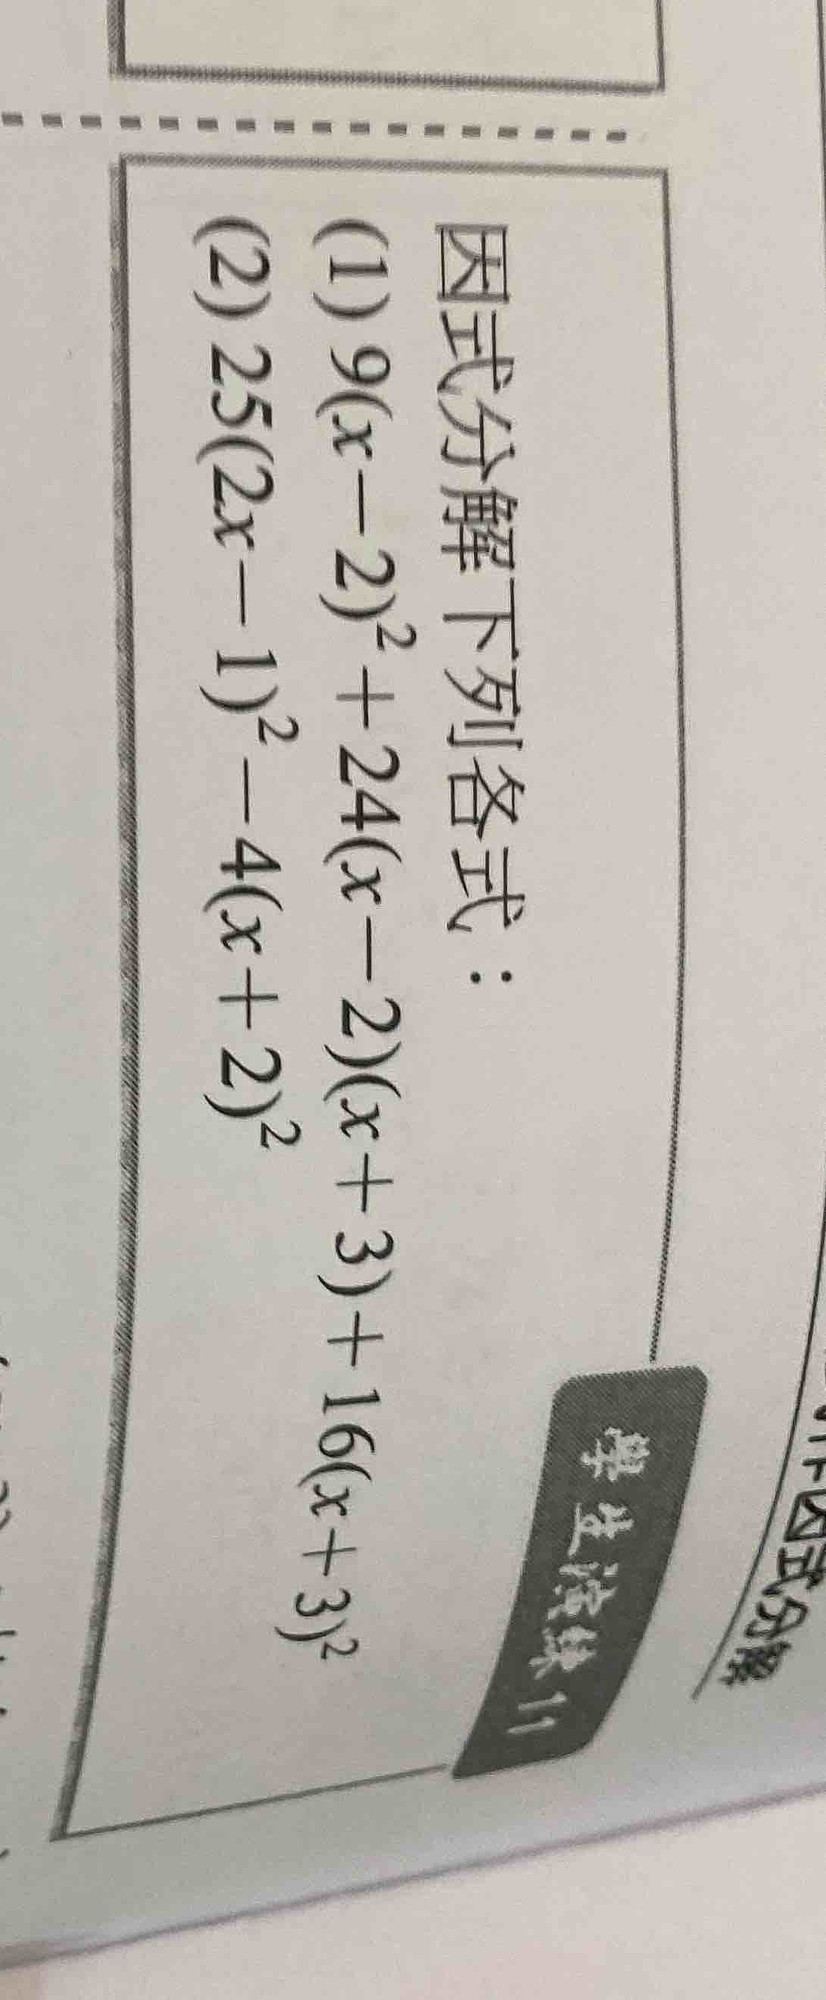 因式分解
學生演練 11
因式分解下列各式：
(1) 9(x－2)²＋24(x－2)(x＋3)＋16(x＋3)²
(2) 25(2x－1)²－4(x＋2)²